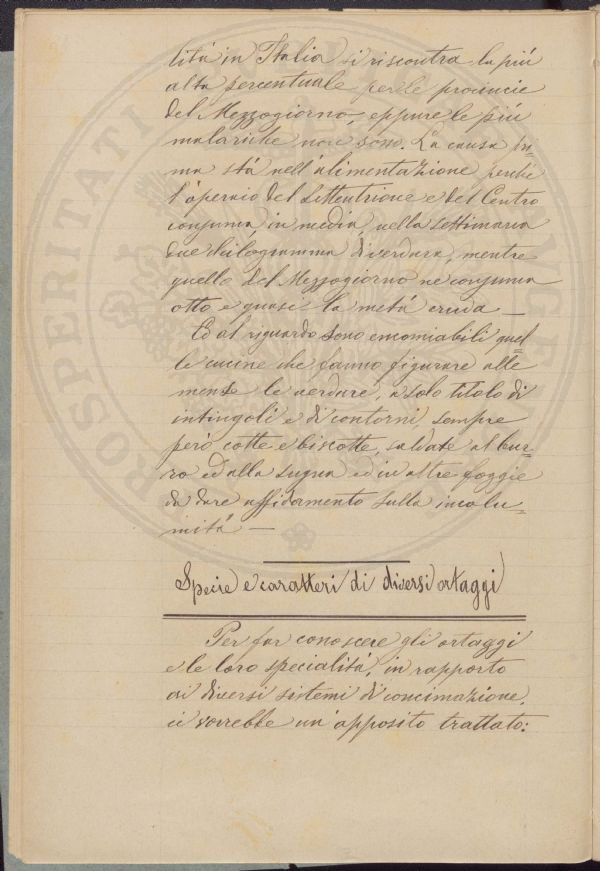 lità in Italia si riscontra la più
alta percentuale per le provincie
del Mezzogiorno, eppure le più
malariche non sono. La causa in=
ma stà nell'alimentazione, perchè
l'operaio del Settentrione e del Centro
consuma, in media, nella settimana
due chilogramma di verdura, mentre
quello del Mezzogiorno ne consuma
otto e quasi la metà cruda —
Ed al riguardo sono encomiabili quel=
le cucine che fanno figurare alle
mense le verdure, a solo titolo di
intingoli e di contorni, sempre
però cotte e biscotte, saldate al bur=
ro ed alla sugna ed in altre foggie
da dare affidamento sulla incolu=
mità —
Specie e caratteri di diversi ortaggi
Per far conoscere gli ortaggi
e le loro specialità, in rapporto
ai diversi sistemi di concimazione,
ci vorrebbe un'apposito trattato:
PROSPERITATI